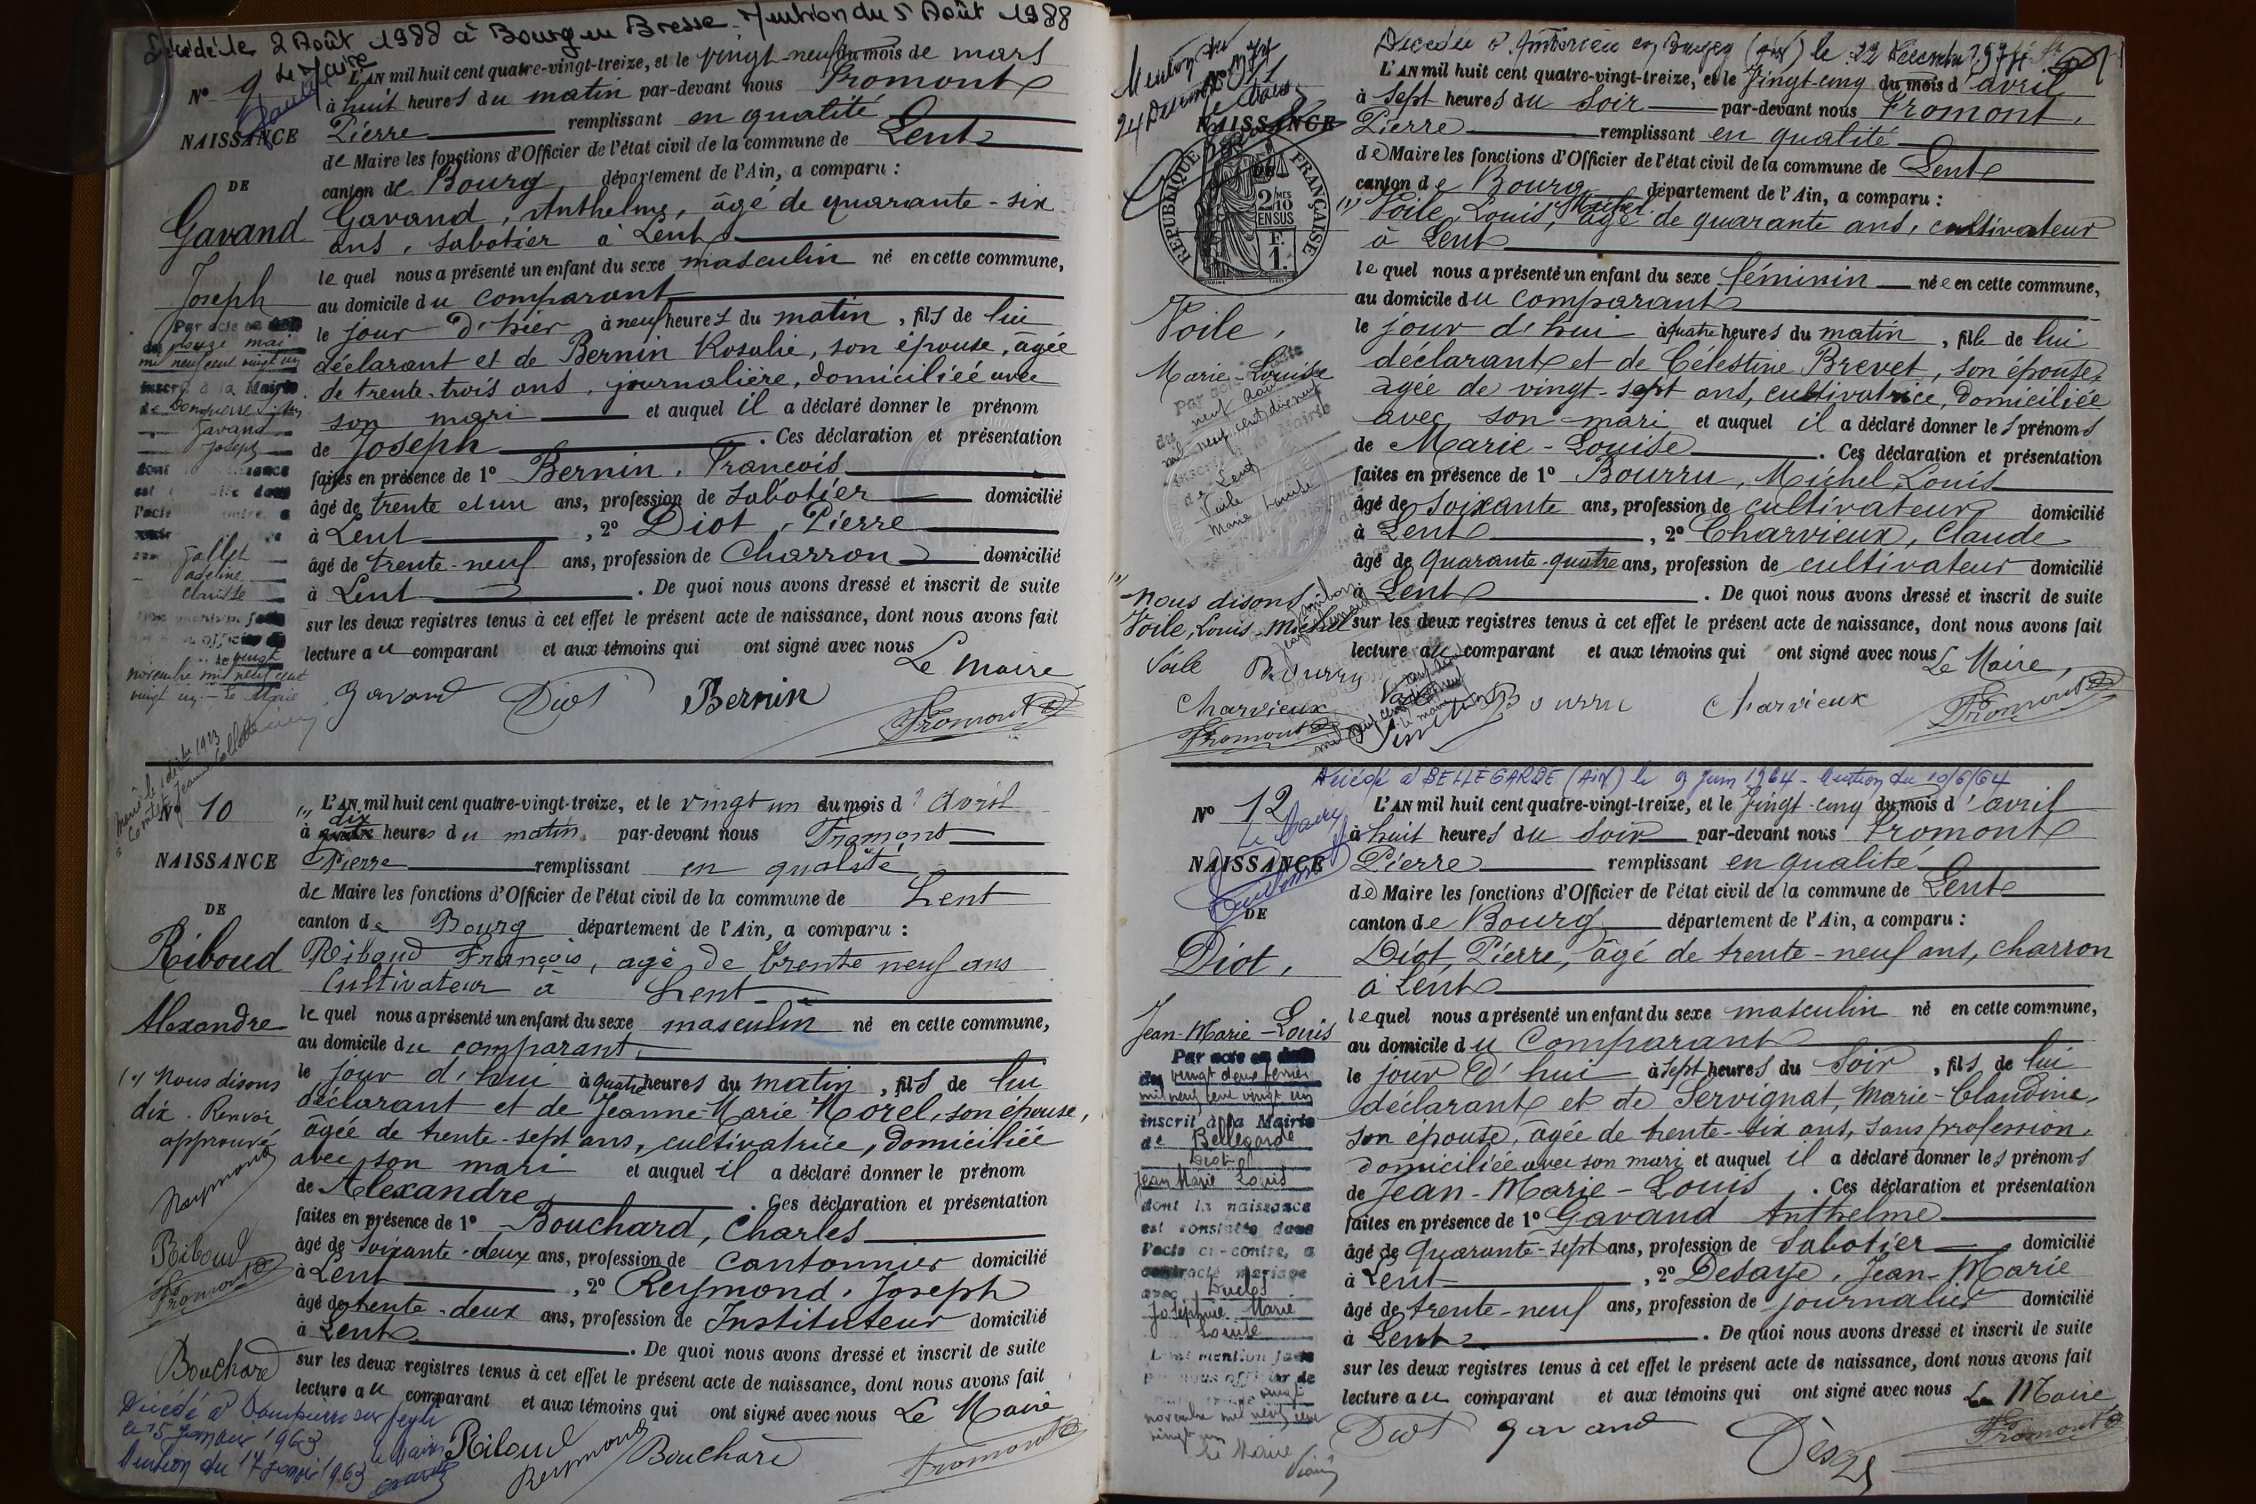 Décédé le 2 Août 1988 à Bourg en Bresse. Mention du 5 Août 1988
Le Maire
N° 9
NAISSANCE
DE
Gavand
Joseph
Par acte en date
du onze mai
mil neuf cent vingt un
inscrit à la Mairie
de Dompierre s/ Ain
Gavand
Joseph
dont la naissance
est constatée dans
l'acte ci-contre, a
Jallet
Adeline
Claudia
novembre mil neuf cent
vingt un. - Le Maire
L'AN mil huit cent quatre-vingt-treize, et le vingt neuf du mois de mars
à huit heures du matin par-devant nous Fromont
Pierre remplissant en qualité
de Maire les fonctions d'Officier de l'état civil de la commune de Lent
canton de Bourg département de l'Ain, a comparu :
Gavand, Anthelme, âgé de quarante-six
ans, sabotier à Lent
le quel nous a présenté un enfant du sexe masculin né en cette commune,
au domicile du comparant
le jour d'hier à neuf heures du matin, fils de lui
déclarant et de Bernin Rosalie, son épouse, âgée
de trente-trois ans, journalière, domiciliée avec
son mari et auquel il a déclaré donner le prénom
de Joseph. Ces déclaration et présentation
faites en présence de 1° Bernin, François
âgé de trente et un ans, profession de sabotier domicilié
à Lent, 2° Diot, Pierre
âgé de trente-neuf ans, profession de Charron domicilié
à Lent. De quoi nous avons dressé et inscrit de suite
sur les deux registres tenus à cet effet le présent acte de naissance, dont nous avons fait
lecture au comparant et aux témoins qui ont signé avec nous
Le Maire
Gavand Diot Bernin Fromont
N° 10
NAISSANCE
DE
Riboud
Alexandre
(") Nous disons
dix. Renvoi
approuvé
Reymond
Riboud
Fromont
Bouchard
Décédé à Dompierre sur Veyle
le 15 Janvier 1963
Mention du 17 Janvier 1963
le Maire
" L'AN mil huit cent quatre-vingt-treize, et le vingt un du mois d'Avril
dix
à heures du matin par-devant nous Fromont
Pierre remplissant en qualité
de Maire les fonctions d'Officier de l'état civil de la commune de Lent
canton de Bourg département de l'Ain, a comparu :
Riboud François, âgé de trente neuf ans
Cultivateur à Lent
le quel nous a présenté un enfant du sexe masculin né en cette commune,
au domicile du comparant
le jour d'hui à quatre heures du matin, fils de lui
déclarant et de Jeanne-Marie Morel, son épouse,
âgée de trente-sept ans, cultivatrice, domiciliée
avec son mari et auquel il a déclaré donner le prénom
de Alexandre. Ces déclaration et présentation
faites en présence de 1° Bouchard, Charles
âgé de soixante-deux ans, profession de cantonnier domicilié
à Lent, 2° Reymond, Joseph
âgé de trente-deux ans, profession de Instituteur domicilié
à Lent. De quoi nous avons dressé et inscrit de suite
sur les deux registres tenus à cet effet le présent acte de naissance, dont nous avons fait
lecture au comparant et aux témoins qui ont signé avec nous Le Maire
Riboud Reymond Bouchard Fromont
Décédée à Ambérieu en Bugey (Ain) le 22 décembre 1974
Mention du
24 Décembre 1974
NAISSANCE
DE
RÉPUBLIQUE FRANÇAISE
2/10 MES
EN SUS
F.
1.
Voile,
Marie-Louise
Par acte en date
du neuf août
mil neuf cent dix neuf
inscrit à la Mairie
de Lent
Voile
Marie Louise
" Nous disons
Voile, Louis-Michel
Voile Bourru
Charvieux
Fromont
L'AN mil huit cent quatre-vingt-treize, et le vingt-cinq du mois d'avril
à sept heures du soir par-devant nous Fromont,
Pierre remplissant en qualité
de Maire les fonctions d'Officier de l'état civil de la commune de Lent
canton de Bourg département de l'Ain, a comparu :
" Voile, Louis, Michel âgé de quarante ans, cultivateur
à Lent
le quel nous a présenté un enfant du sexe féminin née en cette commune,
au domicile du comparant
le jour d'hui à quatre heures du matin, fille de lui
déclarant et de Célestine Brevet, son épouse,
âgée de vingt-sept ans, cultivatrice, domiciliée
avec son mari et auquel il a déclaré donner les prénoms
de Marie-Louise. Ces déclaration et présentation
faites en présence de 1° Bourru, Michel, Louis
âgé de soixante ans, profession de cultivateur domicilié
à Lent, 2° Charvieux, Claude
âgé de quarante-quatre ans, profession de cultivateur domicilié
à Lent. De quoi nous avons dressé et inscrit de suite
sur les deux registres tenus à cet effet le présent acte de naissance, dont nous avons fait
lecture au comparant et aux témoins qui ont signé avec nous Le Maire,
Bourru Charvieux Fromont
Décédé à BELLEGARDE (AIN) le 9 Juin 1964 - Mention du 10/6/64
N° 12
Le Maire
NAISSANCE
DE
Diot,
Jean-Marie-Louis
Par acte en date
du vingt deux février
mil neuf cent vingt un
inscrit à la Mairie
de Bellegarde
Diot
Jean Marie Louis
dont la naissance
est constatée dans
l'acte ci-contre, a
contracté mariage
avec Duclos
Joséphine Marie
Louise
Dont mention faite
par nous officier de
vingt
novembre mil neuf cent
vingt un
Le Maire
L'AN mil huit cent quatre-vingt-treize, et le vingt-cinq du mois d'avril
à huit heures du soir par-devant nous Fromont
Pierre remplissant en qualité
de Maire les fonctions d'Officier de l'état civil de la commune de Lent
canton de Bourg département de l'Ain, a comparu :
Diot, Pierre, âgé de trente-neuf ans, charron
à Lent
le quel nous a présenté un enfant du sexe masculin né en cette commune,
au domicile du Comparant
le jour d'hui à sept heures du soir, fils de lui
déclarant et de Servignat, Marie-Claudine,
son épouse, âgée de trente-six ans, sans profession,
domiciliée avec son mari et auquel il a déclaré donner les prénoms
de Jean-Marie-Louis. Ces déclaration et présentation
faites en présence de 1° Gavand Anthelme
âgé de quarante-sept ans, profession de sabotier domicilié
à Lent, 2° Desaye, Jean-Marie
âgé de trente-neuf ans, profession de journalier domicilié
à Lent. De quoi nous avons dressé et inscrit de suite
sur les deux registres tenus à cet effet le présent acte de naissance, dont nous avons fait
lecture au comparant et aux témoins qui ont signé avec nous Le Maire
Diot Gavand Fromont